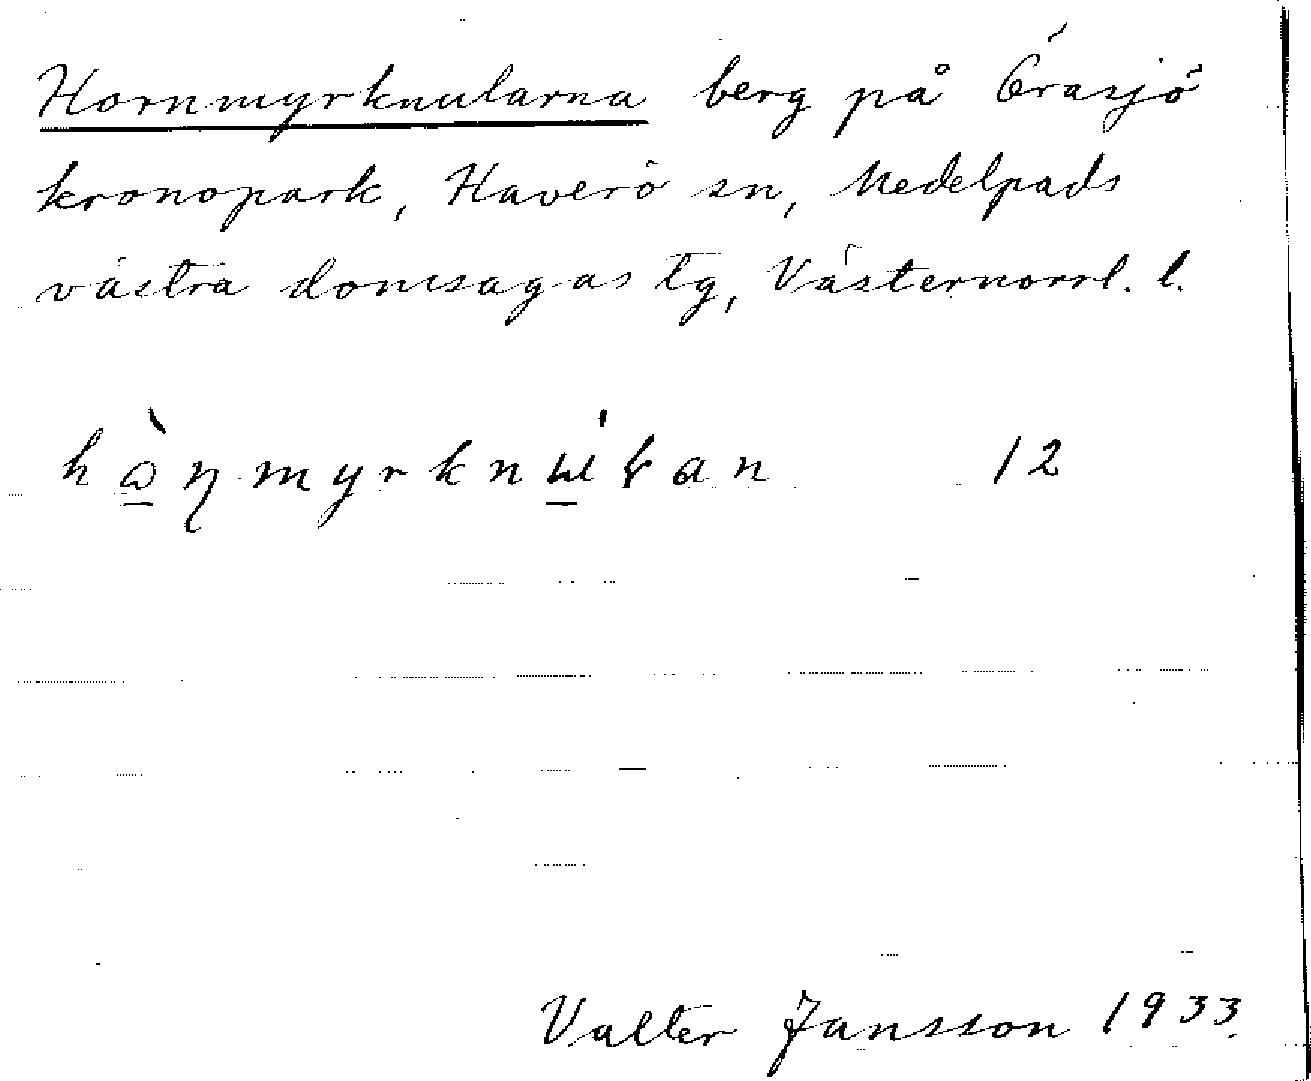 Hornmyrknularna berg på Örasjö
kronopark, Haverö sn, Medelpads
västra domsagas tg, Västernorrl. l.
12
Valter Jansson 1933.